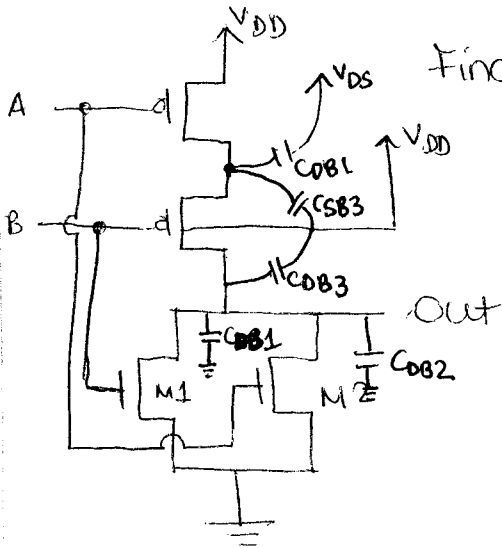 VDD
Finc
A
VDS
CDB1
VDD
CSB3
B
CDB3
Out
CDB1
CDB2
M1
M2